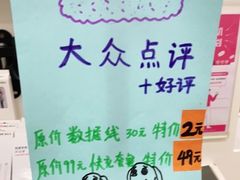 大众点评
+好评
原价数据线 30元 特价 2元
原价99元 快充套餐 特价 49元